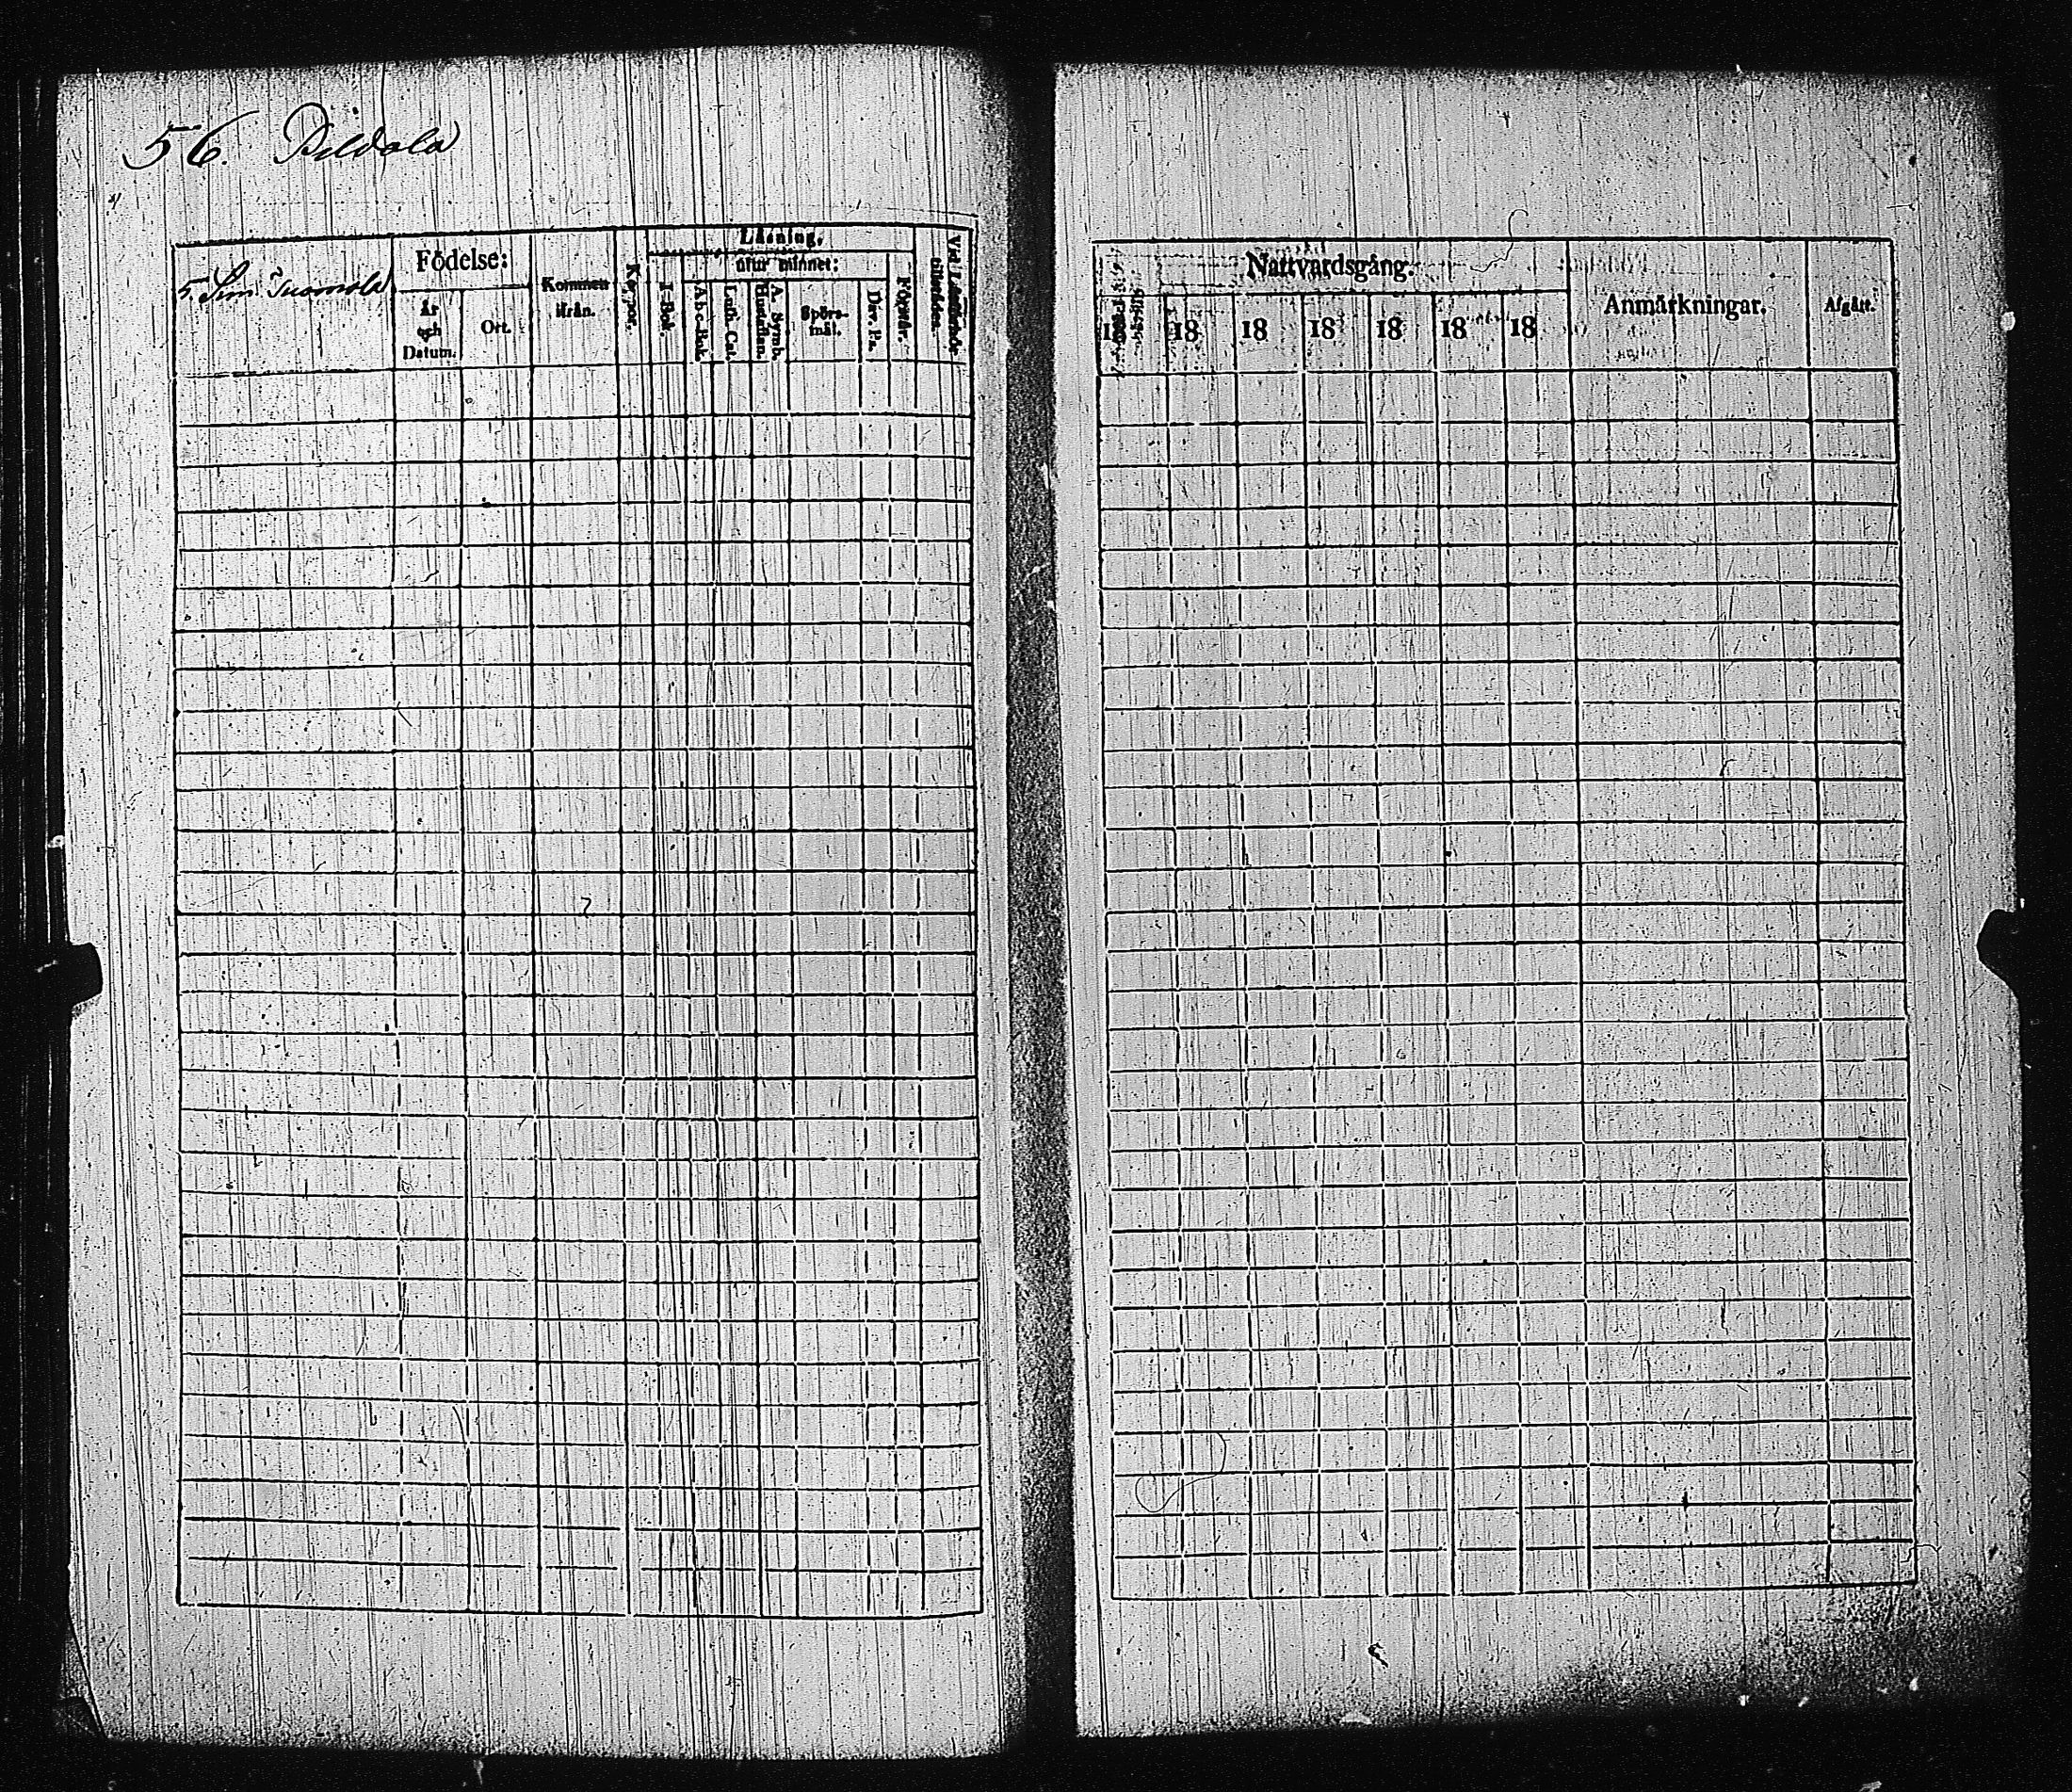 56. Pildola
5 Sim. Tuomola
Födelse:
År och Datum.
Ort.
Kommen ifrån.
Koppor.
Läsning,
utur minnet:
I Bok.
A b c-Bok.
Luth. Cat.
A. Symb.
Hustaflan.
Spörs-
mål.
Dav. Ps.
Förstår.
Vid Läseförhör
tillstädes.
Nattvardsgång.
18 18 18 18 18 18 18
Anmärkningar.
Afgått.